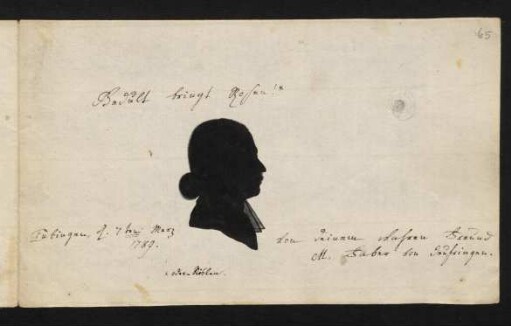 65.
Gedult bringt Rosen
Tübingen, d. 7ten Merz
1789.
von deinem wahren Freund
M. Faber von